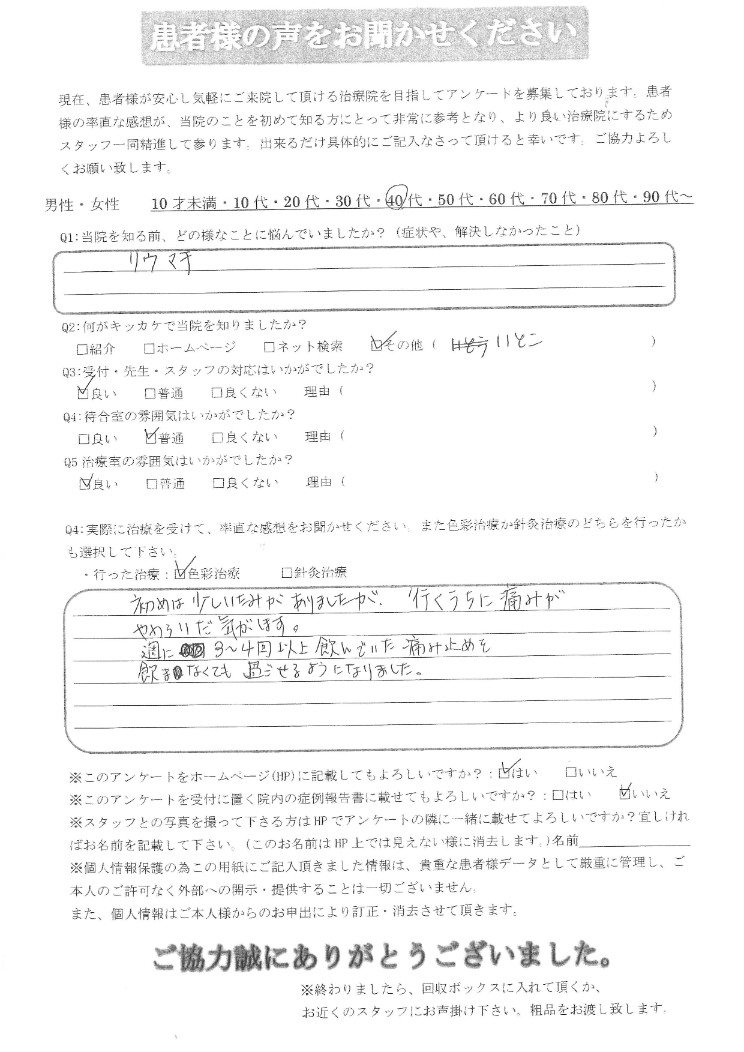 患者様の声をお聞かせください
現在、患者様が安心し気軽にご来院して頂ける治療院を目指してアンケートを募集しております。患者
様の率直な感想が、当院のことを初めて知る方にとって非常に参考となり、より良い治療院にするため
スタッフ一同精進して参ります。出来るだけ具体的にご記入なさって頂けると幸いです。ご協力よろし
くお願い致します。
男性・女性　10才未満・10代・20代・30代・40代・50代・60代・70代・80代・90代～
Q1:当院を知る前、どの様なことに悩んでいましたか？（症状や、解決しなかったこと）
リウマチ
Q2:何がキッカケで当院を知りましたか？
□紹介　□ホームページ　□ネット検索　☑その他（ いとこ ）
Q3:受付・先生・スタッフの対応はいかがでしたか？
☑良い　□普通　□良くない　理由（　）
Q4:待合室の雰囲気はいかがでしたか？
□良い　☑普通　□良くない　理由（　）
Q5治療室の雰囲気はいかがでしたか？
☑良い　□普通　□良くない　理由（　）
Q4:実際に治療を受けて、率直な感想をお聞かせください。また色彩治療か針灸治療のどちらを行ったか
も選択して下さい。
・行った治療：☑色彩治療　□針灸治療
初めは少しいたみがありましたが、行くうちに痛みが
やわらいだ気がします。
週に 3～4回以上飲んでいた痛み止めを
飲まなくても過ごせるようになりました。
※このアンケートをホームページ(HP)に記載してもよろしいですか？：☑はい　□いいえ
※このアンケートを受付に置く院内の症例報告書に載せてもよろしいですか？：□はい　☑いいえ
※スタッフとの写真を撮って下さる方はHPでアンケートの隣に一緒に載せてよろしいですか？宜しけれ
ばお名前を記載して下さい。（このお名前はHP上では見えない様に消去します。）名前
※個人情報保護の為この用紙にご記入頂きました情報は、貴重な患者様データとして厳重に管理し、ご
本人のご許可なく外部への開示・提供することは一切ございません。
また、個人情報はご本人様からのお申出により訂正・消去させて頂きます。
ご協力誠にありがとうございました。
※終わりましたら、回収ボックスに入れて頂くか、
お近くのスタッフにお声掛け下さい。粗品をお渡し致します。